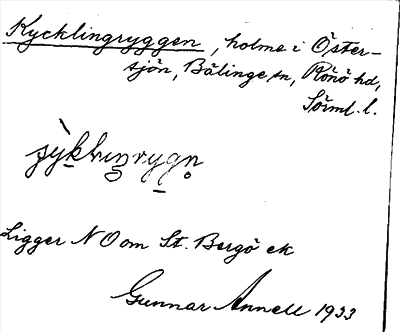 Kycklingryggen, holme i Öster-
sjön, Bälinge sn, Rönö hd,
Sörml. l.
Ligger NO om St. Bergö ek
Gunnar Annell 1933